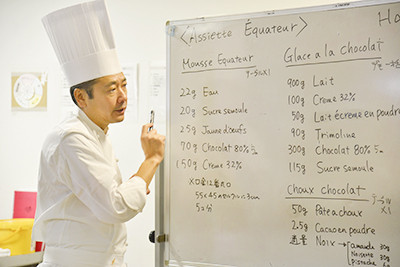 〈Assiette Équateur〉
Mousse Equateur
22g Eau
20g Sucre semoule
25g Jaune d'oeufs
70g Chocolat 80%
150g Creme 32%
Glace a la chocolat
900g Lait
100g Creme 32%
50g Lait écreme en poudre
90g Trimoline
300g Chocolat 80%
115g Sucre semoule
Choux chocolat
50g Pate a choux
2.5g Cacao en poudre
適量 Noix
amande 30g
Noisette 30g
pistache